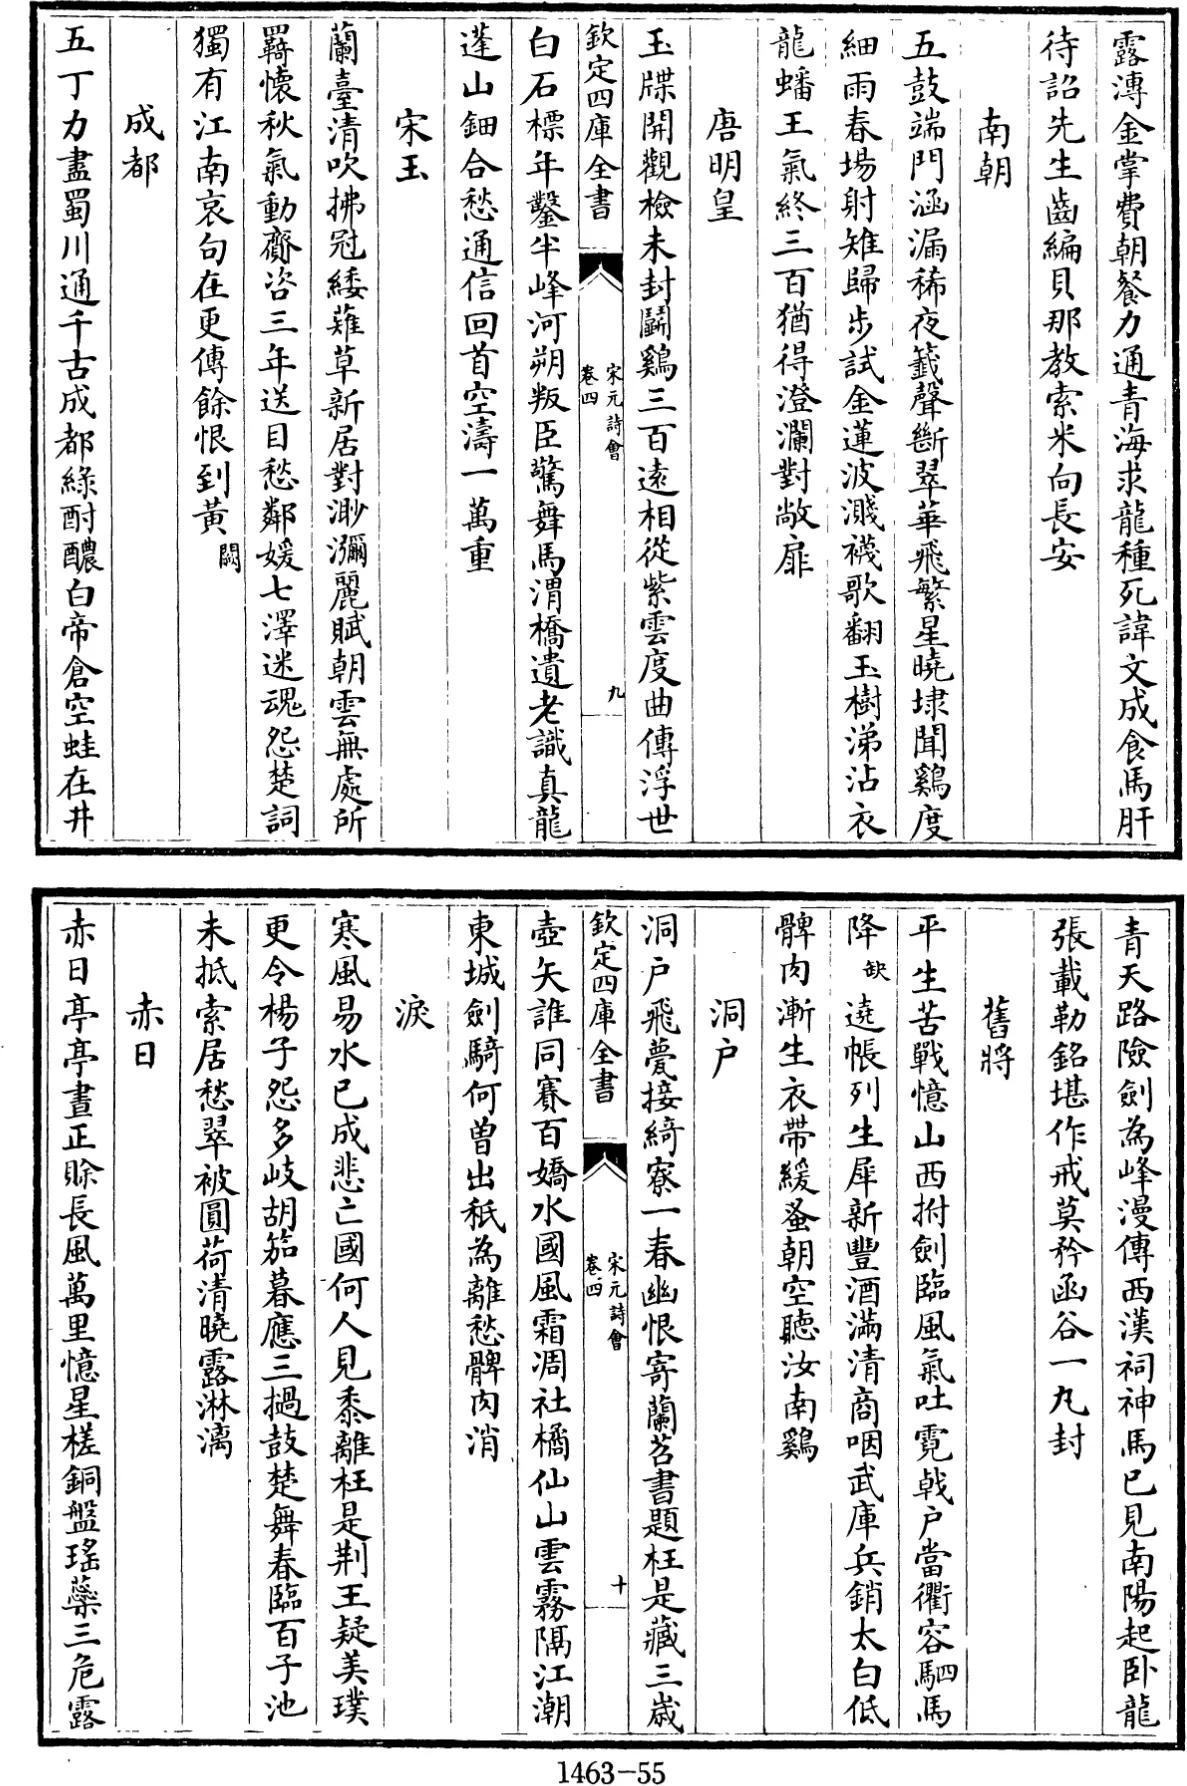 露漙金掌費朝餐力通青海求龍種死諱文成食馬肝
待詔先生齒編貝那教索米向長安
南朝
五鼓端門涵漏稀夜籤聲斷翠華飛繁星曉埭聞鷄度
細雨春場射雉歸步試金蓮波濺襪歌翻玉樹涕沾衣
龍蟠王氣終三百猶得澄瀾對敞扉
唐明皇
玉牒開觀檢未封鬭鷄三百遠相從紫雲度曲傳浮世
欽定四庫全書
宋元詩會
卷四
九
白石標年鑿半峰河朔叛臣驚舞馬渭橋遺老識真龍
蓬山鈿合愁通信回首空濤一萬重
宋玉
蘭臺清吹拂冠緌薙草新居對渺瀰麗賦朝雲無處所
羇懷秋氣動齎咨三年送目愁鄰媛七澤迷魂怨楚詞
獨有江南哀句在更傳餘恨到黃闕
成都
五丁力盡蜀川通千古成都綠酎醲白帝倉空蛙在井
青天路險劍為峰漫傳西漢祠神馬已見南陽起卧龍
張載勒銘堪作戒莫矜函谷一丸封
舊將
平生苦戰憶山西拊劍臨風氣吐霓戟户當衢容駟馬
降缺遶帳列生犀新豐酒滿清商咽武庫兵銷太白低
髀肉漸生衣帶緩蚤朝空聽汝南鷄
洞户
洞户飛甍接綺寮一春幽恨寄蘭苕書題枉是藏三嵗
欽定四庫全書
宋元詩會
卷四
十
壺矢誰同賽百嬌水國風霜凋社橘仙山雲霧隔江潮
東城劍騎何曽出秖為離愁髀肉消
淚
寒風易水已成悲亡國何人見黍離枉是荆王疑美璞
更令楊子怨多岐胡笳暮應三撾鼓楚舞春臨百子池
未抵索居愁翠被圓荷清曉露淋漓
赤日
赤日亭亭晝正賒長風萬里憶星槎銅盤瑤蘂三危露
1463-55